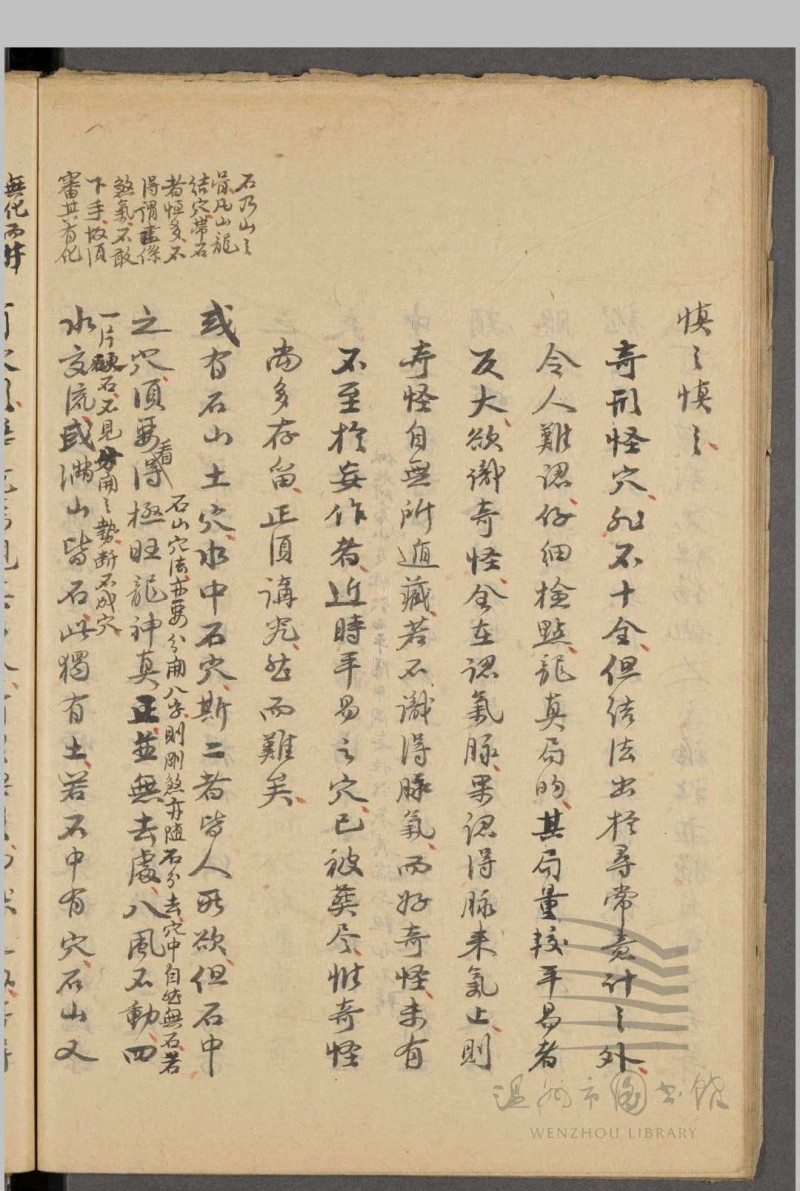 慎之慎之
奇形怪穴、孰不十全、但結法出於尋常意計之外、
令人難認、仔細撿點、龍真局的、其局量較平易者
反大、欲識奇怪、全在認氣脉、果認得脉来氣止、則
奇怪自無所遁藏、若不識得脉氣、而好奇怪、未有
不至於妄作者、近時平易之穴、已被葬尽、惟奇怪
尚多存留、正須講究、然而難矣、
石乃山之
骨凡山龍
結穴、帶石
者恒多、不
得謂盡係
煞氣、不敢
下手、故須
審其有化
或有石山土穴、水中石穴、斯二者皆人所欲、但石中
之穴、須要看得極旺龍神真正、並無去處、八風不動、四
石山穴法、亦要分開八字、則剛煞亦随石分去、穴中自然無石、若
一片硬石、不見分開之勢、断不成穴
水交流、或滿山皆石、此獨有土、若石中有穴、石山又
無化而
温州市图书馆
WENZHOU LIBRARY